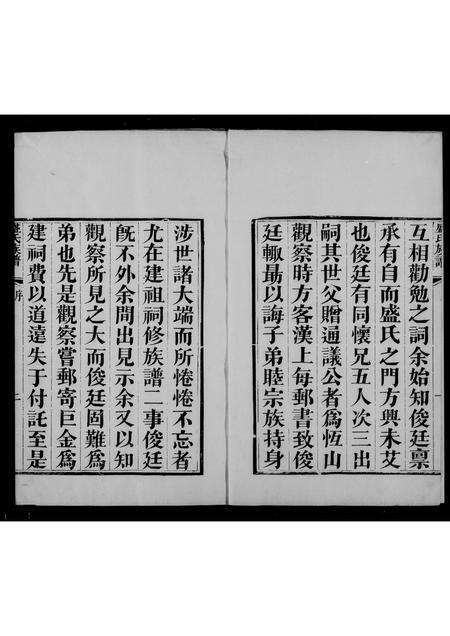 盛氏族譜
一
互相勸勉之詞余始知俊廷稟
承有自而盛氏之門方興未艾
也俊廷有同懷兄五人次三出
嗣其世父贈通議公者爲恆山
觀察時方客漢上每郵書致俊
廷輙勗以誨子弟睦宗族持身
涉世諸大端而所惓惓不忘者
尤在建祖祠修族譜二事俊廷
旣不外余間出見示余又以知
觀察所見之大而俊廷固難爲
弟也先是觀察嘗郵寄巨金爲
建祠費以道遠失于付託至是
盛氏族譜
序
二